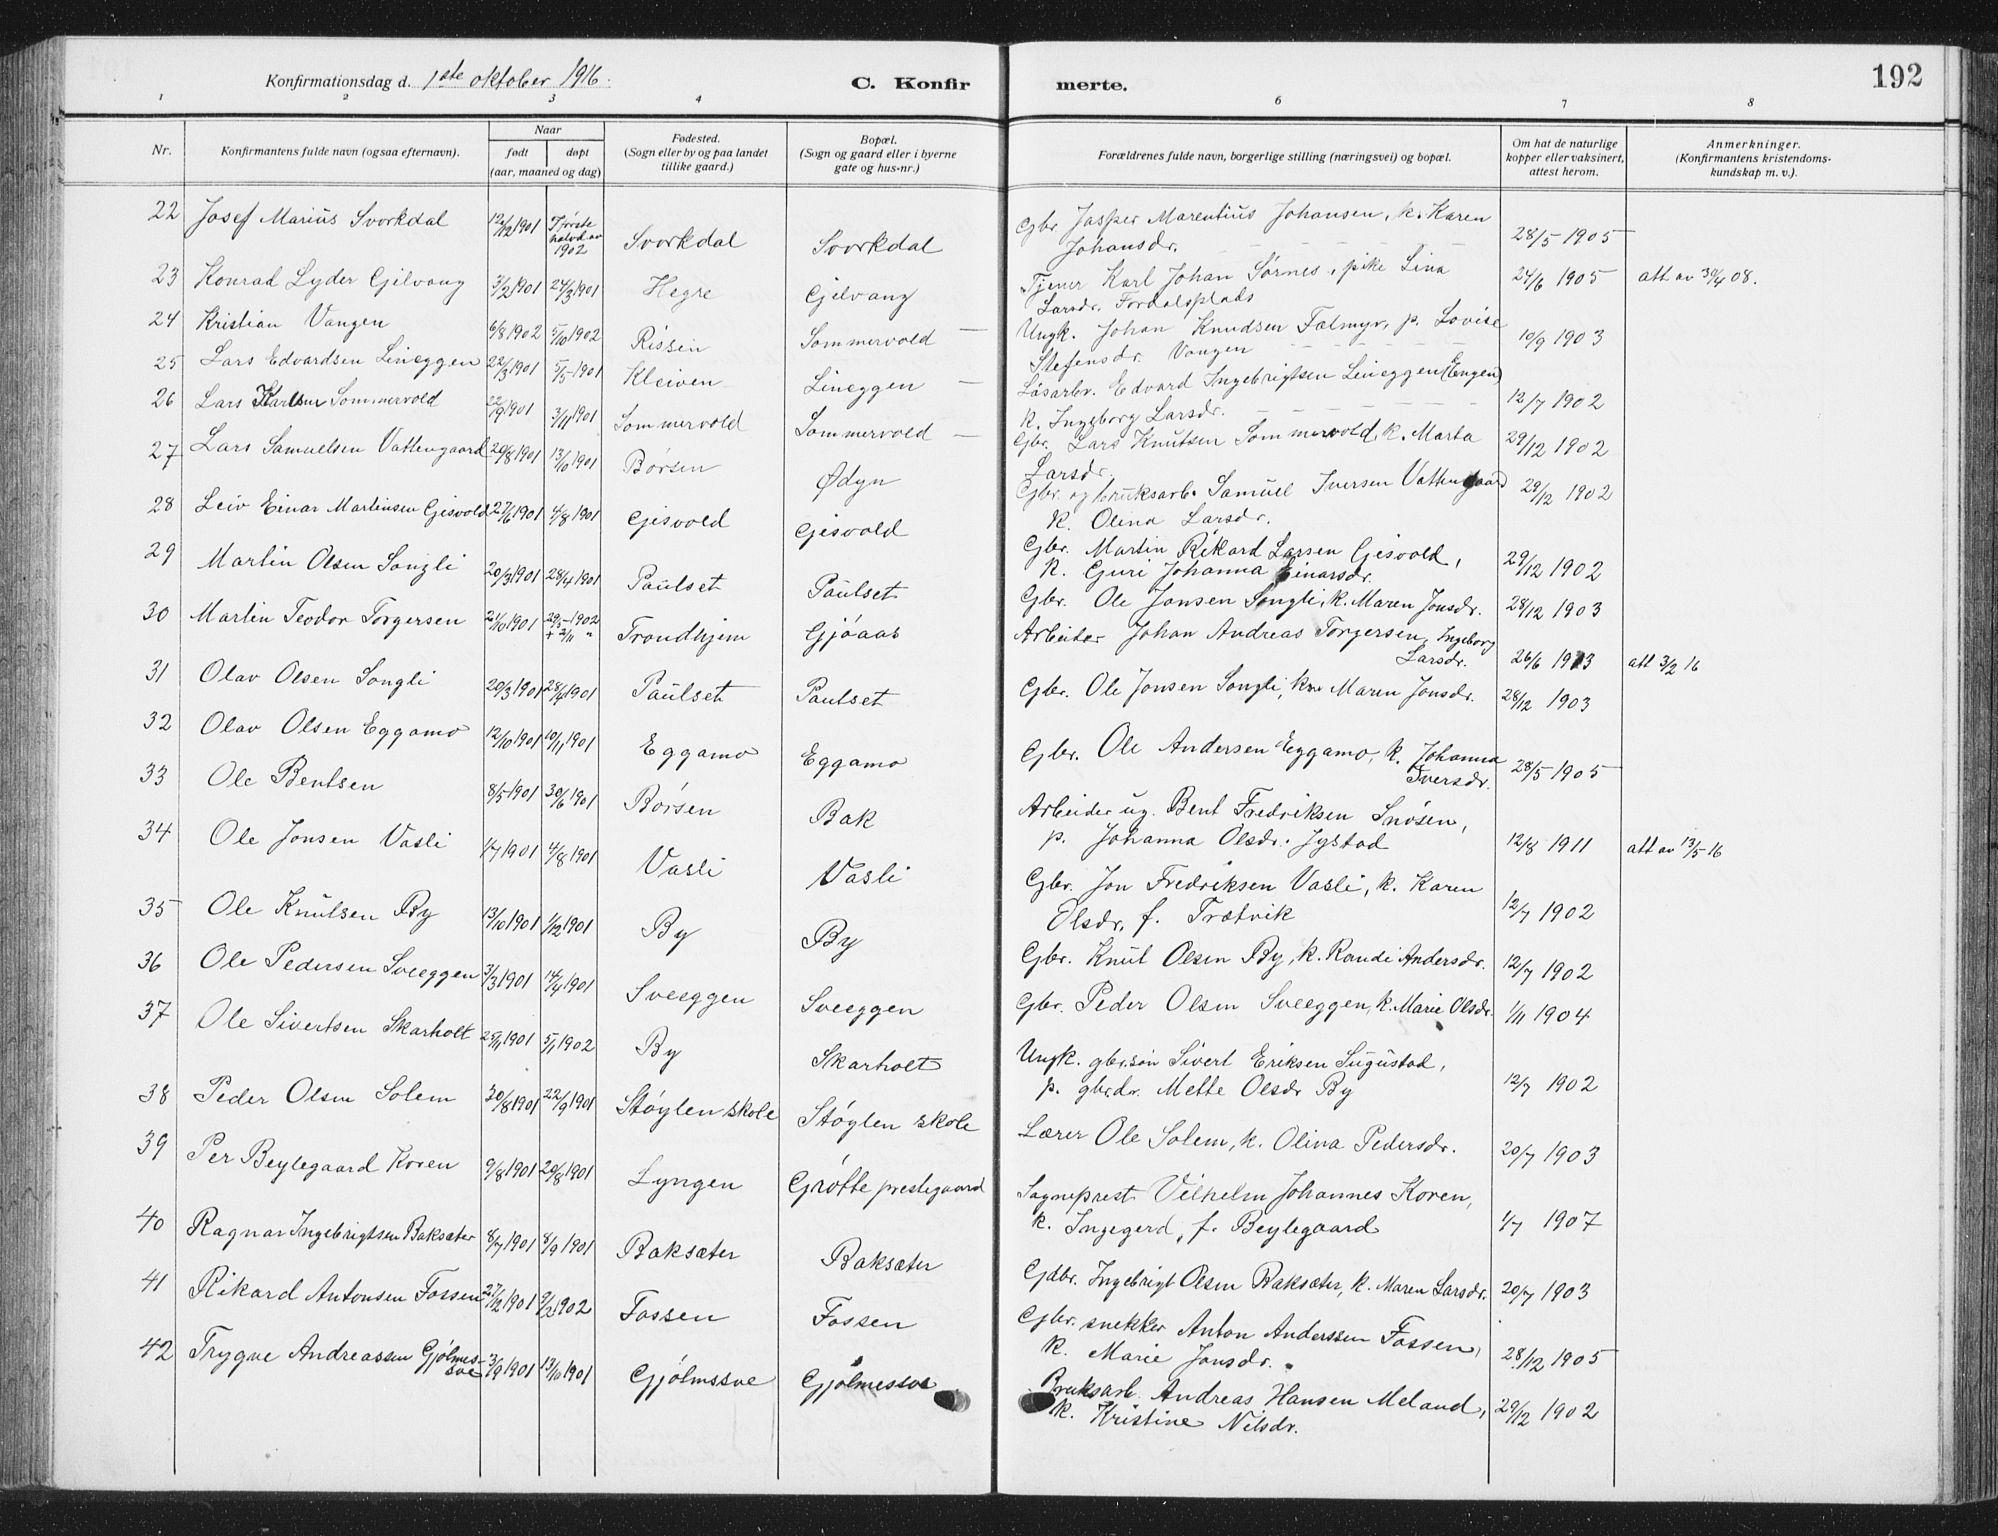 192
Konfirmationsdag d. 1ste oktober 1916.
C. Konfirmerte.
1 2 3 4 6 7 8
Nr. | Konfirmantens fulde navn (ogsaa efternavn). | Naar født døpt (aar, maaned og dag) | Fødested. (Sogn eller by og paa landet tillike gaard.) | Bopæl. (Sogn og gaard eller i byerne gate og hus-nr.) | Forældrenes fulde navn, borgerlige stilling (næringsvei) og bopæl. | Om hat de naturlige kopper eller vaksinert, attest herom. | Anmerkninger. (Konfirmantens kristendoms-kundskap m. v.).
22 Josef Marius Svorkdal 12/12 1901 I første halvd. av 1902 Svorkdal Svorkdal Gbr. Jasper Marentius Johansen, k. Karen Johansdr. 28/5 1905
23 Konrad Lyder Gjelvang 3/2 1901 24/3 1901 Hegre Gjelvang Tjener Karl Johan Sørnes, pike Lina Larsdr. Fordalsplads 24/6 1905 att av 30/4 08.
24 Kristian Vangen 6/8 1902 5/10 1902 Rissen Sommervold Ungk. Johan Knudsen Falmyr, p. Lovise Stefensdr. Vangen 10/9 1903
25 Lars Edvardsen Lineggen 22/3 1901 5/5 1901 Kleiven Lineggen Løsarbr. Edvard Ingebrigtsen Lineggen (Engen) k. Ingeborg Larsdr. 12/7 1902
26 Lars Karlsen Sommervold 22/9 1901 3/11 1901 Sommervold Sommervold Gbr. Lars Knutsen Sommervold, k. Marta Larsdr. 29/12 1902
27 Lars Samuelsen Vattengaard 20/8 1901 13/10 1901 Børsen Ødyn Gbr. og bruksarb. Samuel Iversen Vattengaard k. Olina Larsdr. 29/12 1902
28 Leiv Einar Martinsen Gjesvold 27/6 1901 4/8 1901 Gjesvold Gjesvold Gbr. Martin Rikard Larsen Gjesvold, k. Guri Johanna Einarsdr. 29/12 1902
29 Martin Olsen Songli 20/3 1901 28/4 1901 Paulset Paulset Gbr. Ole Jonsen Songli, k. Maren Jonsdr. 28/12 1903
30 Martin Teodor Torgersen 21/10 1901 29/5 1902 + 2/11 " Trondhjem Gjøaas Arbeider Johan Andreas Torgersen, Ingeborg Larsdr. 26/6 1913 att 3/2 16
31 Olav Olsen Songli 20/3 1901 28/4 1901 Paulset Paulset Gbr. Ole Jonsen Songli, k. Maren Jonsdr. 28/12 1903
32 Olav Olsen Eggamo 12/10 1901 10/11 1901 Eggamo Eggamo Gbr. Ole Andersen Eggamo, k. Johanna Iversdr. 28/5 1905
33 Ole Bentsen 8/5 1901 30/6 1901 Børsen Bak Arbeider ug. Bent Fredriksen Snøsen, p. Johanna Olsdr. Jystad 12/8 1911 att av 13/5 16
34 Ole Jonsen Vasli 1/7 1901 4/8 1901 Vasli Vasli Gbr. Jon Fredriksen Vasli, k. Karen Olsdr, f. Trætvik 12/7 1902
35 Ole Knutsen By 13/10 1901 1/12 1901 By By Gbr. Knut Olsen By, k. Randi Andersdr. 12/7 1902
36 Ole Pedersen Sveeggen 3/3 1901 14/4 1901 Sveeggen Sveeggen Gbr. Peder Olsen Sveeggen, k. Marie Olsdr. 1/11 1904
37 Ole Sivertsen Skarholt 25/11 1901 5/1 1902 By Skarholt Ungk. gbr.søn Sivert Eriksen Sugustad, p. gbr.dr. Mette Olsdr By 12/7 1902
38 Peder Olsen Solem 30/8 1901 22/9 1901 Støylen skole Støylen skole Lærer Ole Solem, k. Olina Pedersdr. 20/7 1903
39 Per Beylegaard Koren 9/8 1901 20/8 1901 Lyngen Grøtte prestegaard Sogneprest Vilhelm Johannes Koren, k. Ingegerd, f. Beylegaard 1/7 1907
40 Ragnar Ingebrigtsen Baksæter 8/7 1901 8/9 1901 Baksæter Baksæter Gdbr. Ingebrigt Olsen Baksæter, k. Maren Larsdr. 20/7 1903
41 Rikard Antonsen Fossen 27/12 1901 9/2 1902 Fossen Fossen Gbr. snekker Anton Anderssen Fossen, k. Marie Jonsdr. 28/12 1905
42 Trygve Andreassen Gjølmes-sve 3/9 1901 13/10 1901 Gjølmssve Gjølmessve Bruksarb. Andreas Hansen Meland, k. Kristine Nilsdr. 29/12 1902